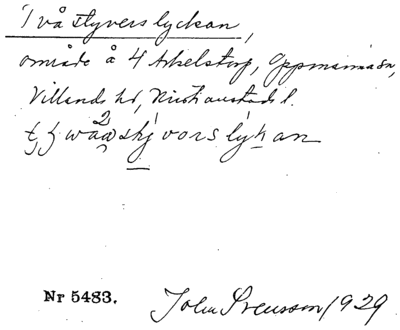 Två styverslyckan,
område å 4 Arkelstorp, Oppmanna sn,
Villands hd, Kristianstads l.
Nr 5483. John Svensson 1929